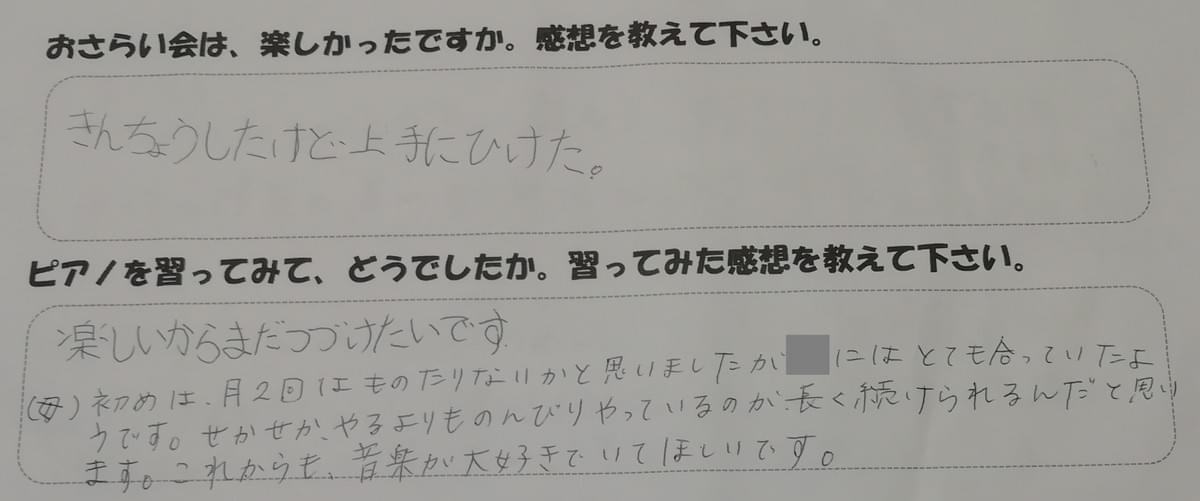 おさらい会は、楽しかったですか。感想を教えて下さい。
きんちょうしたけど、上手にひけた。
ピアノを習ってみて、どうでしたか。習ってみた感想を教えて下さい。
楽しいからまだつづけたいです
(母)初めは、月2回はものたりないかと思いましたが にはとても合っていたよ
うです。せかせか、やるよりものんびりやっているのが、長く続けられるんだと思い
ます。これからも、音楽が大好きでいてほしいです。